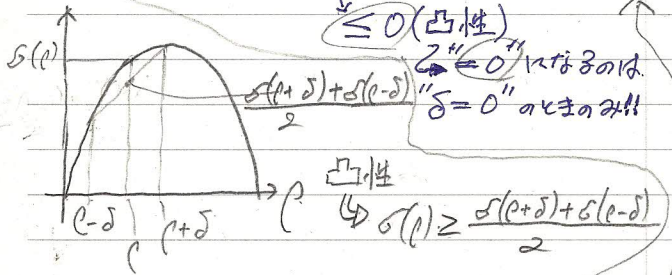 ≤ 0 (凸性)
"= 0" になるのは
"δ = 0" のときのみ!!
σ(ρ)
σ(ρ+δ)+σ(ρ-δ)
2
ρ-δ
ρ
ρ+δ
ρ
凸性
↳ σ(ρ) ≥ σ(ρ+δ)+σ(ρ-δ)
2